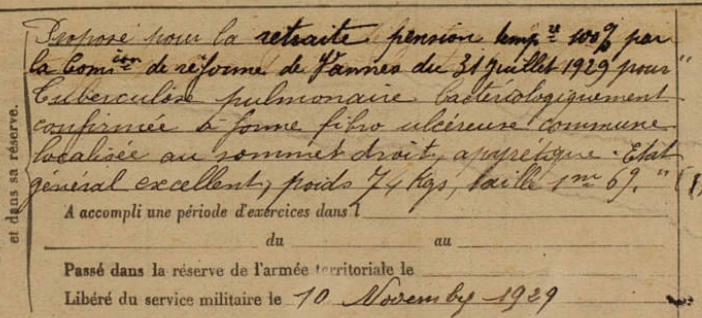 Proposé pour la retraite pension temp re 100% par
la Comi ion de réforme de Vannes du 31 Juillet 1929 pour "
Tuberculose pulmonaire bactériologiquement
confirmée à forme fibro ulcéreuse commune
localisée au sommet droit, apyrétique. Etat
général excellent, poids 74 Kgs, taille 1m 69. "
et dans sa réserve.
A accompli une période d'exercices dans l
du au
Passé dans la réserve de l'armée territoriale le
Libéré du service militaire le 10 Novembre 1929